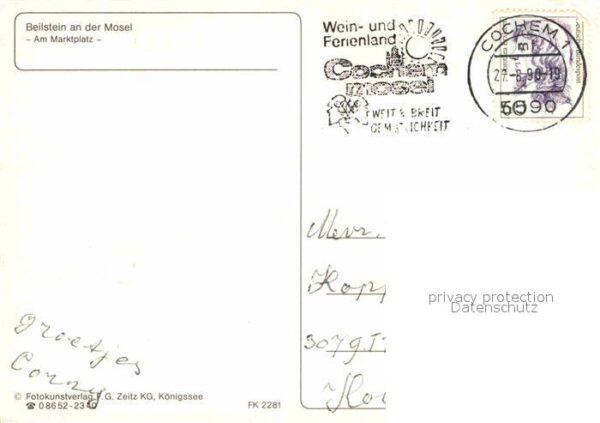 Beilstein an der Mosel
– Am Marktplatz –
Wein- und
Ferienland
Cochem
mosel
WEIT & BREIT
GEMÜTLICHKEIT
COCHEM 1
B
27.-8.90-19
5590
50
Mevr.
Kopp
3079
privacy protection
Datenschutz
Groetjes
Conny
© Fotokunstverlag F. G. Zeitz KG, Königssee
☎ 0 86 52 - 23
FK 2281